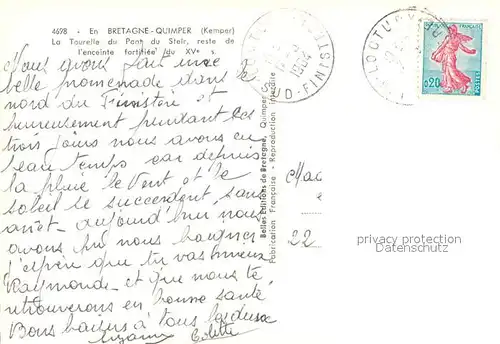 4698 - En BRETAGNE-QUIMPER (Kemper)
La Tourelle du Pont du Steir, reste de
l'enceinte fortifiée du XVe s.
Nous avons fait une
belle promenade dans le
nord du Finistère et
heureusement pendant les
trois jours nous avons eu
beau temps car depuis
la pluie le vent et le
soleil se succèdent, sans
arrêt - aujourd'hui nous
avons pu nous baigner
j'espère que tu vas mieux
Raymonde - et que nous te
retrouverons en bonne santé
Bons baisers à tous les deux
Suzanne Colette
Belles Editions de Bretagne, Quimper
Fabrication Française - Reproduction interdite
SUD-FINISTERE
LOCTUDY
0,20
POSTES
22
privacy protection
Datenschutz